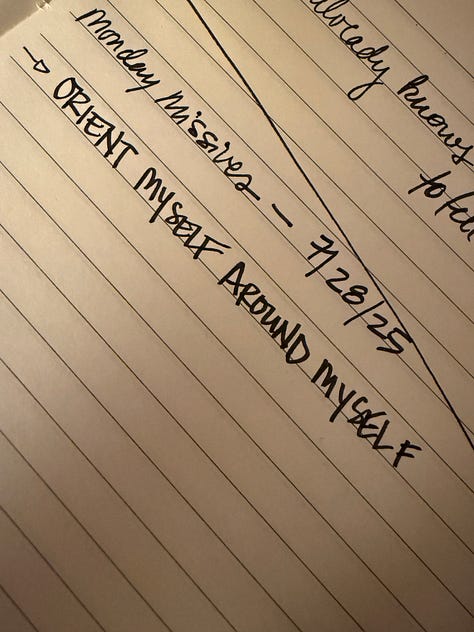 already knows
to
Monday Missives - 7/28/25
→ ORIENT MYSELF AROUND MYSELF